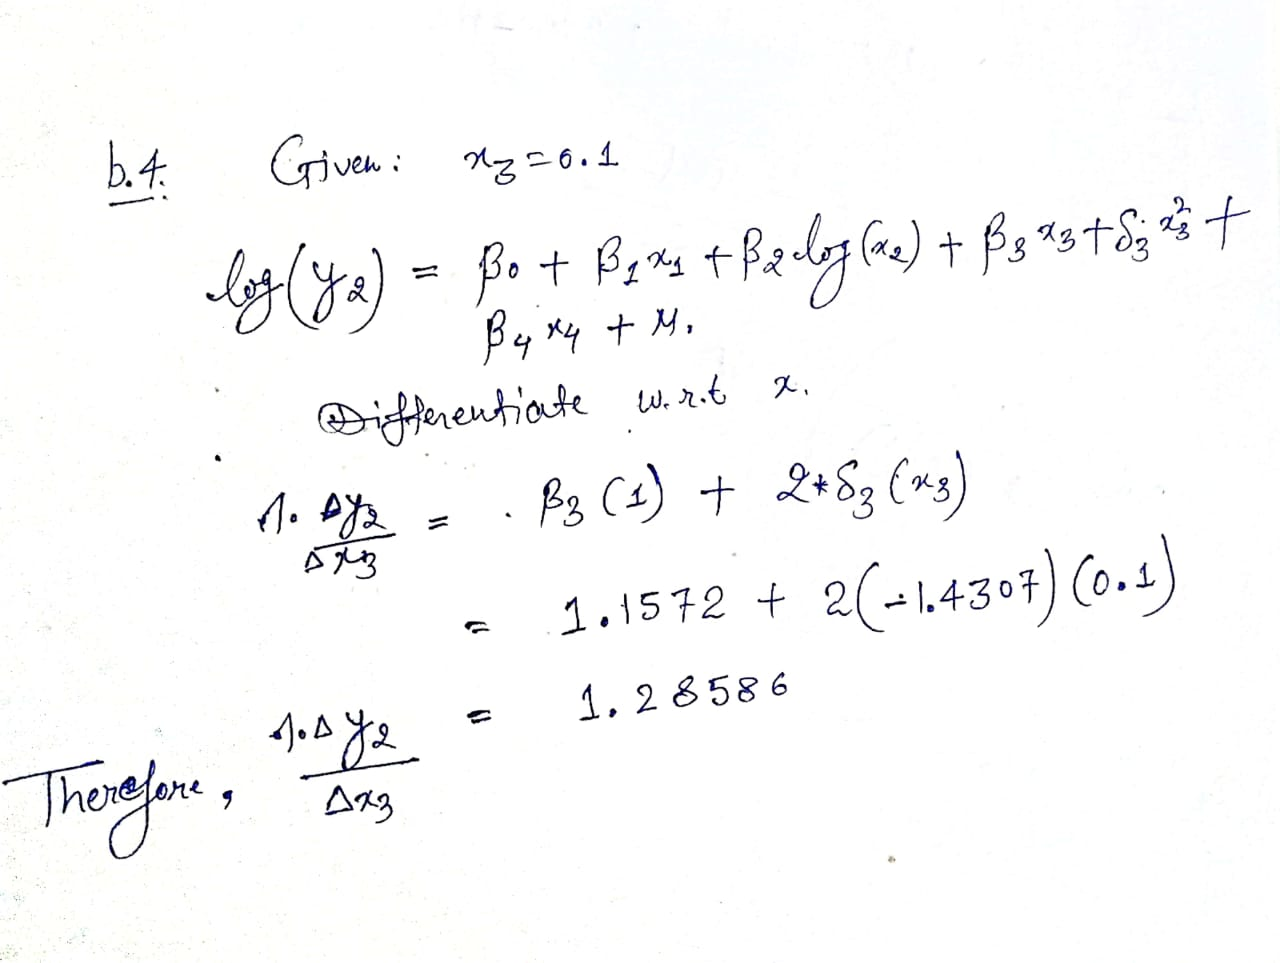 b.4. Given: x₃ = 0.1
log(y₂) = β₀ + β₁x₁ + β₂log(x₂) + β₃x₃ + δ₃x₃² +
β₄x₄ + μ.
Differentiate w.r.t x.
%Δy₂/Δx₃ = β₃(1) + 2*δ₃(x₃)
= 1.1572 + 2(-1.4307)(0.1)
%Δy₂/Δx₃ = 1.28586
Therefore,